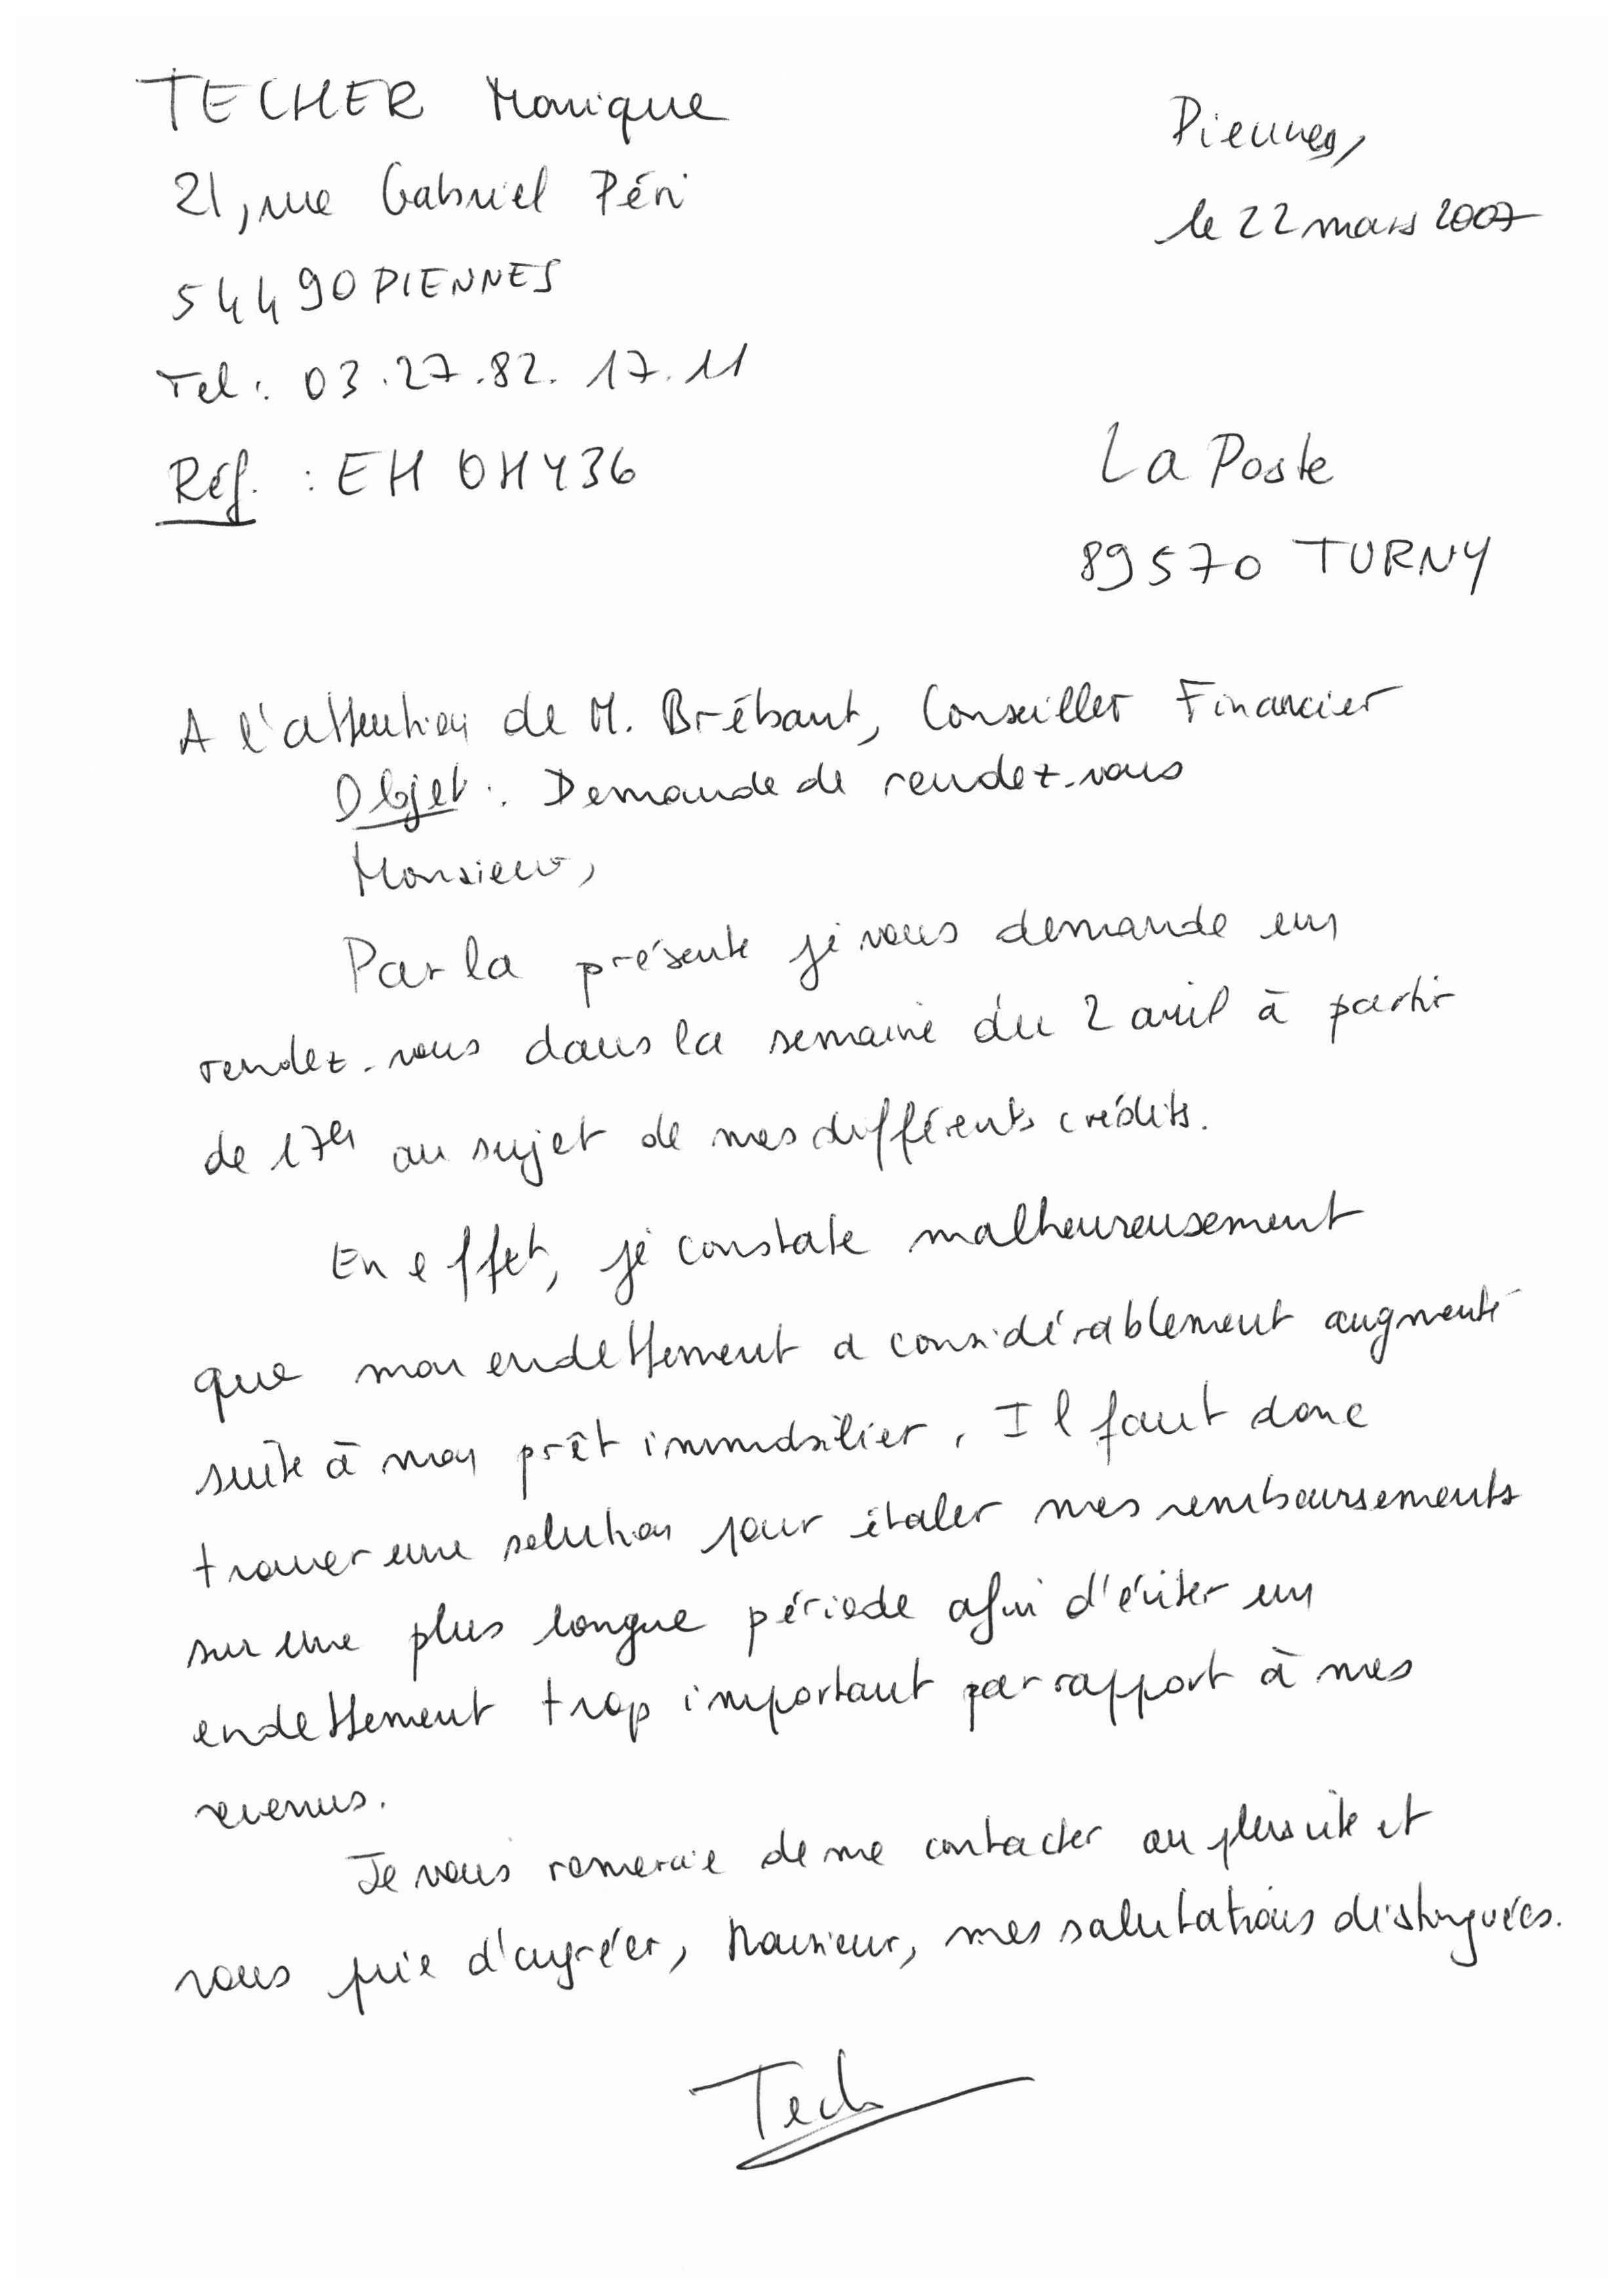 TECHER Monique
21, rue Gabriel Péri
54490 PIENNES
Tel : 03.27.82.17.11
Réf. : EH OHY36
Piennes,
le 22 mars 2007
La Poste
89570 TURNY
A l'attention de M. Brébant, Conseiller Financier
Objet : Demande de rendez-vous
Monsieur,
Par la présente je vous demande un
rendez-vous dans la semaine du 2 avril à partir
de 17H au sujet de mes différents crédits.
En effet, je constate malheureusement
que mon endettement a considérablement augmenté
suite à mon prêt immobilier. Il faut donc
trouver une solution pour étaler mes remboursements
sur une plus longue période afin d'éviter un
endettement trop important par rapport à mes
revenus.
Je vous remercie de me contacter au plus vite et
vous prie d'agréer, Monsieur, mes salutations distinguées.
Tech